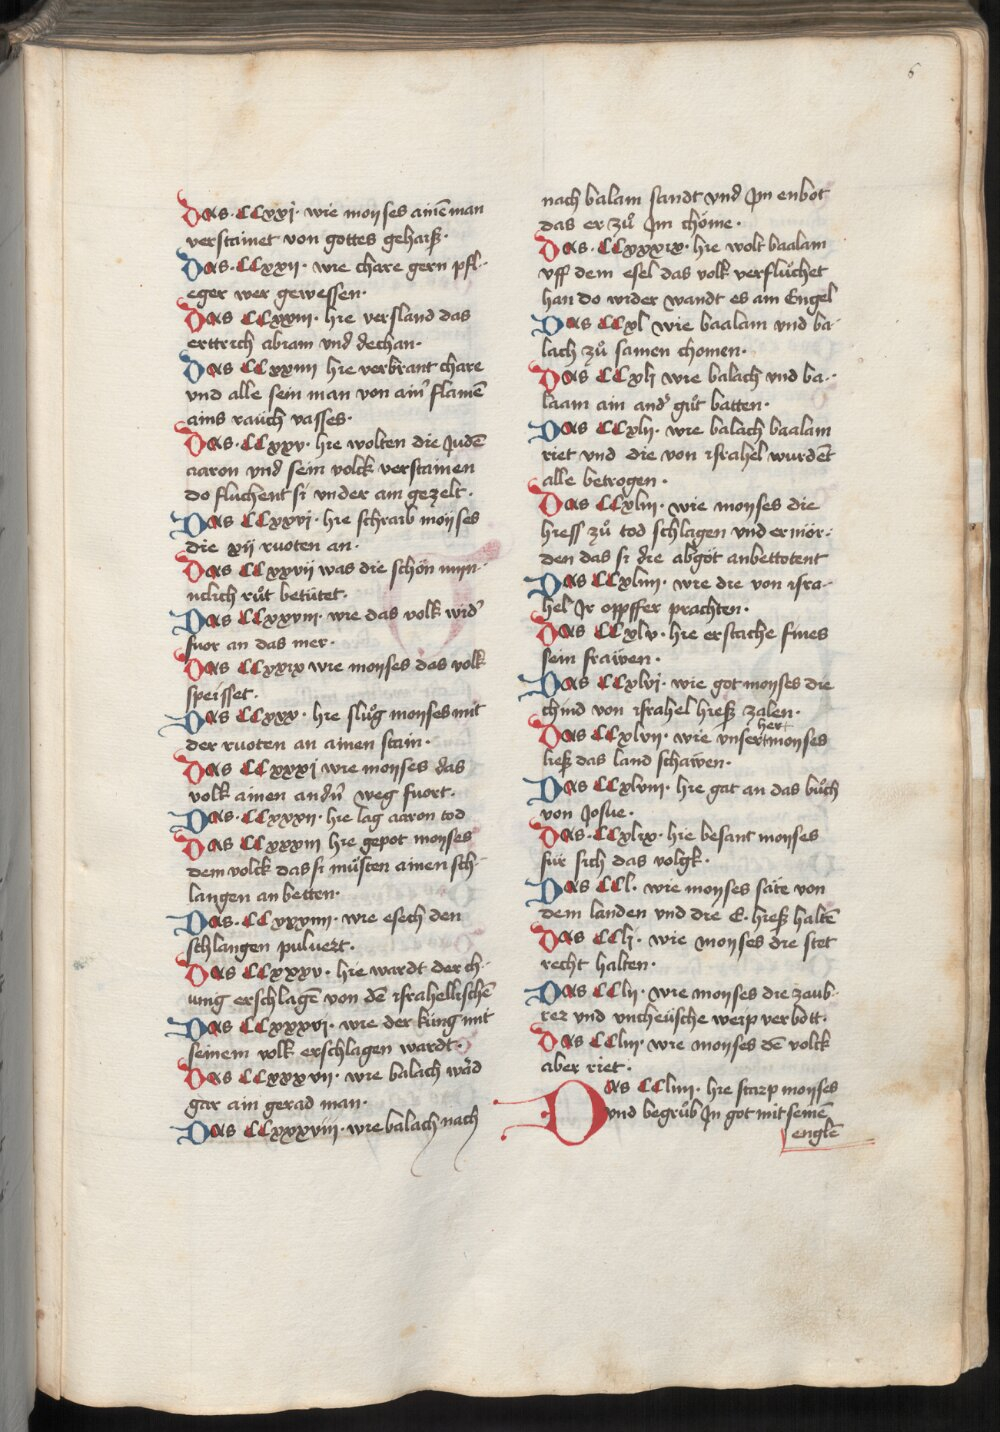 6
Das · CCxxj · wie moyses ainē man
verstainet von gottes gehaiß ·
Das · CCxxij · wie chare gern pfl-
eger wer gewessen ·
Das CCxxiij · hie versland das
erttrich abiram vnd dechan ·
Das CCxxiiij hie verbrant chare
vnd alle sein man von ainͬ flamē
ains rauch vasses ·
Das · CCxxv · hie wolten die Judē
aaron vnd sein volck verstainen
do fluchent si vnder am gezelt ·
Das CCxxvi · hie schraib moyses
die xij ruoten an ·
Das CCxxvij was die schön mÿn-
nclich ruͦt betütet ·
Das CCxxviij · wie das volk widͬ
fuor an das mer ·
Das CCxxix wie moyses das volk
speisset ·
Das CCxxx · hie sluͦg moyses mit
der ruoten an ainen stain ·
Das CCxxxj wie moyses das
volk ainen andͬn weg fuort ·
Das · CCxxxij · hie lag aaron tod
Das CCxxxiij hie gepot moyses
dem volck das si muͤsten ainen sch-
langen an betten ·
Das · CCxxxiiij · wie esech den
schlangen pulvert ·
Das CCxxxv · hie wardt der ch-
unig erschlagē von dē israhellischē
Das CCxxxvi · wie der küng mit
seinem volk erschlagen wardt ·
Das CCxxxvij · wie balach ward
gar ain gerad man ·
Das CCxxxviij · wie balach nach
nach balam sandt vnd Jm enbot
das er zuͦ Jm chöme ·
Das · CCxxxix · hie wolt baalam
vff dem esel das volk verfluͦchet
han do wider wandt es am Engel
Das CCxl wie baalam vnd ba-
lach zuͦ samen chomen ·
Das CCxlj wie balach vnd ba-
laam ain andͬ guͦt batten ·
Das CCxlij · wie balach baalam
riet vnd die von israhel wurdēt
alle betrogen ·
Das CCxliij · wie moyses die
hiess zuͦ tod schlagen vnd ermör-
den das si die abgöt anbettotent
Das CCxliiij · wie die von isra-
hel Jr oppffer prachten ·
Das CCxlv · hie erstache fines
sein frawen ·
Das CCxlvi · wie got moyses die
chind von israhel hieß zalen ·
Das CCxlvij · wie vnser her moyses
ließ das land schawen ·
Das CCxlviij · hie gat an das buͦch
von Josue ·
Das · CCxlix · hie besant moyses
für sich das volgk ·
Das CCl · wie moyses säte von
dem landen vnd die E · hieß haltē
Das CClj · wie moyses die stet
recht halten ·
Das CClij · wie moyses die zaub-
rer vnd vncheüsche weip verbott ·
Das CCliij · wie moyses dē volck
aber riet ·
Das CCliiij · hie starp moyses
vnd begruͦb Jn got mit seinē
englē